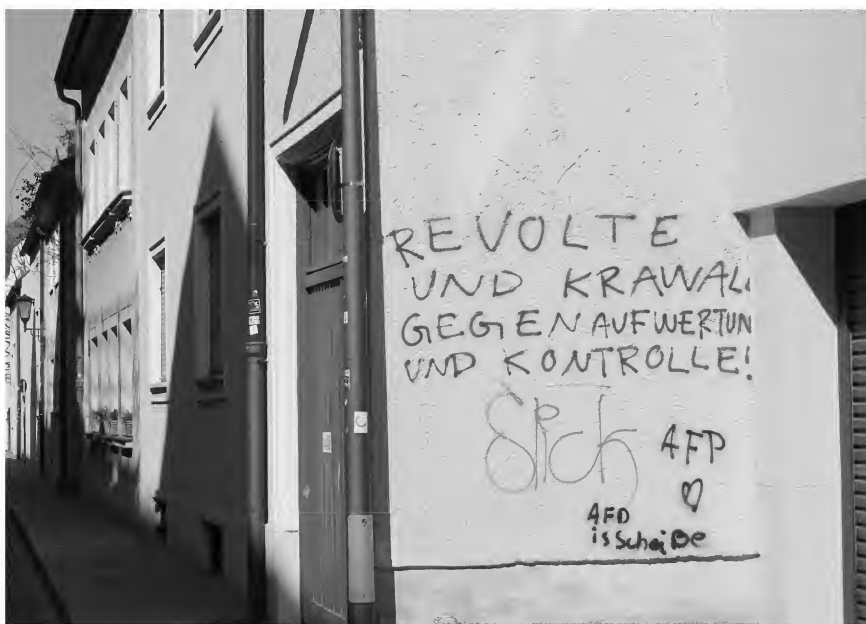 REVOLTE
UND KRAWAL
GEGEN AUFWERTUN
UND KONTROLLE!
Slick
AFP
AFD
is scheiße